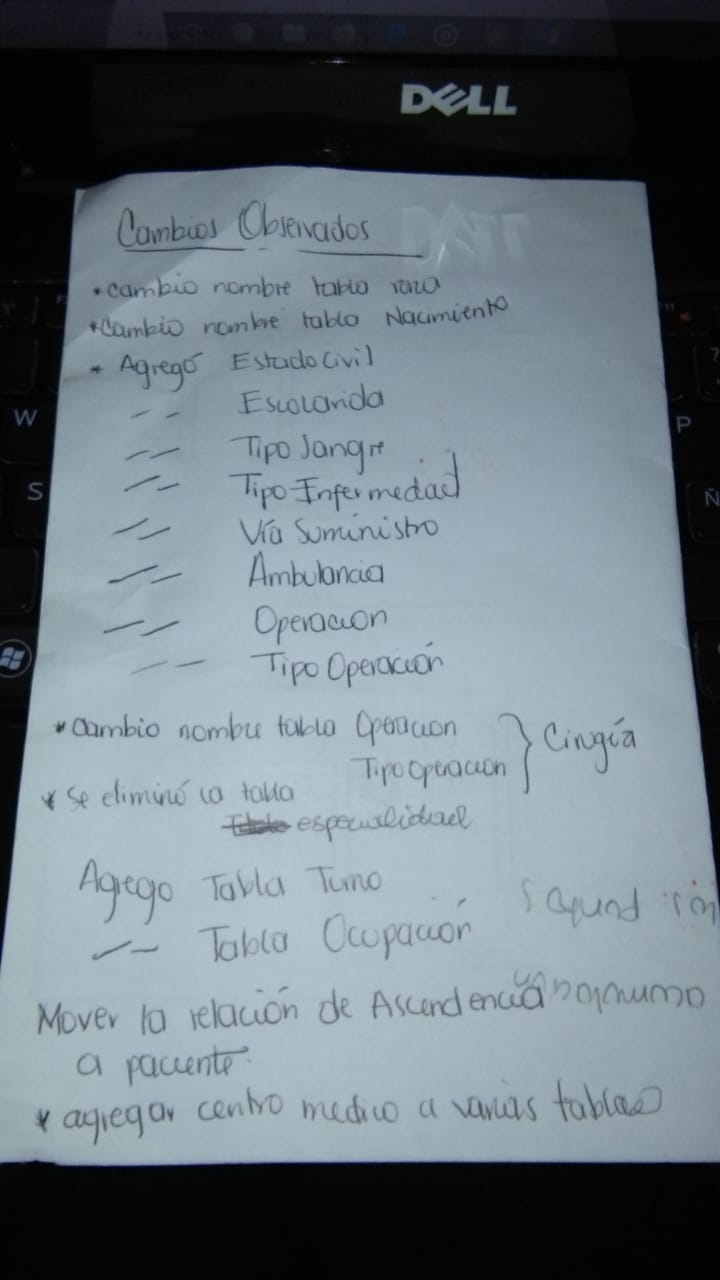 DELL
Cambios Observados
* cambio nombre tabla raza
* Cambio nombre tabla Nacimiento
* Agregó EstadoCivil
-- Escolarida
-- Tipo Sangre
-- Tipo Enfermedad
-- Vía Suministro
-- Ambulancia
-- Operacion
-- Tipo Operación
* Cambio nombre tabla Operacion
Tipo Operacion } Cirugía
* Se eliminó la tabla
especialidad
Agrego Tabla Turno
-- Tabla Ocupación
Mover la relación de Ascendencia
a paciente.
* agregar centro medico a varias tablas
W
S
P
Ñ